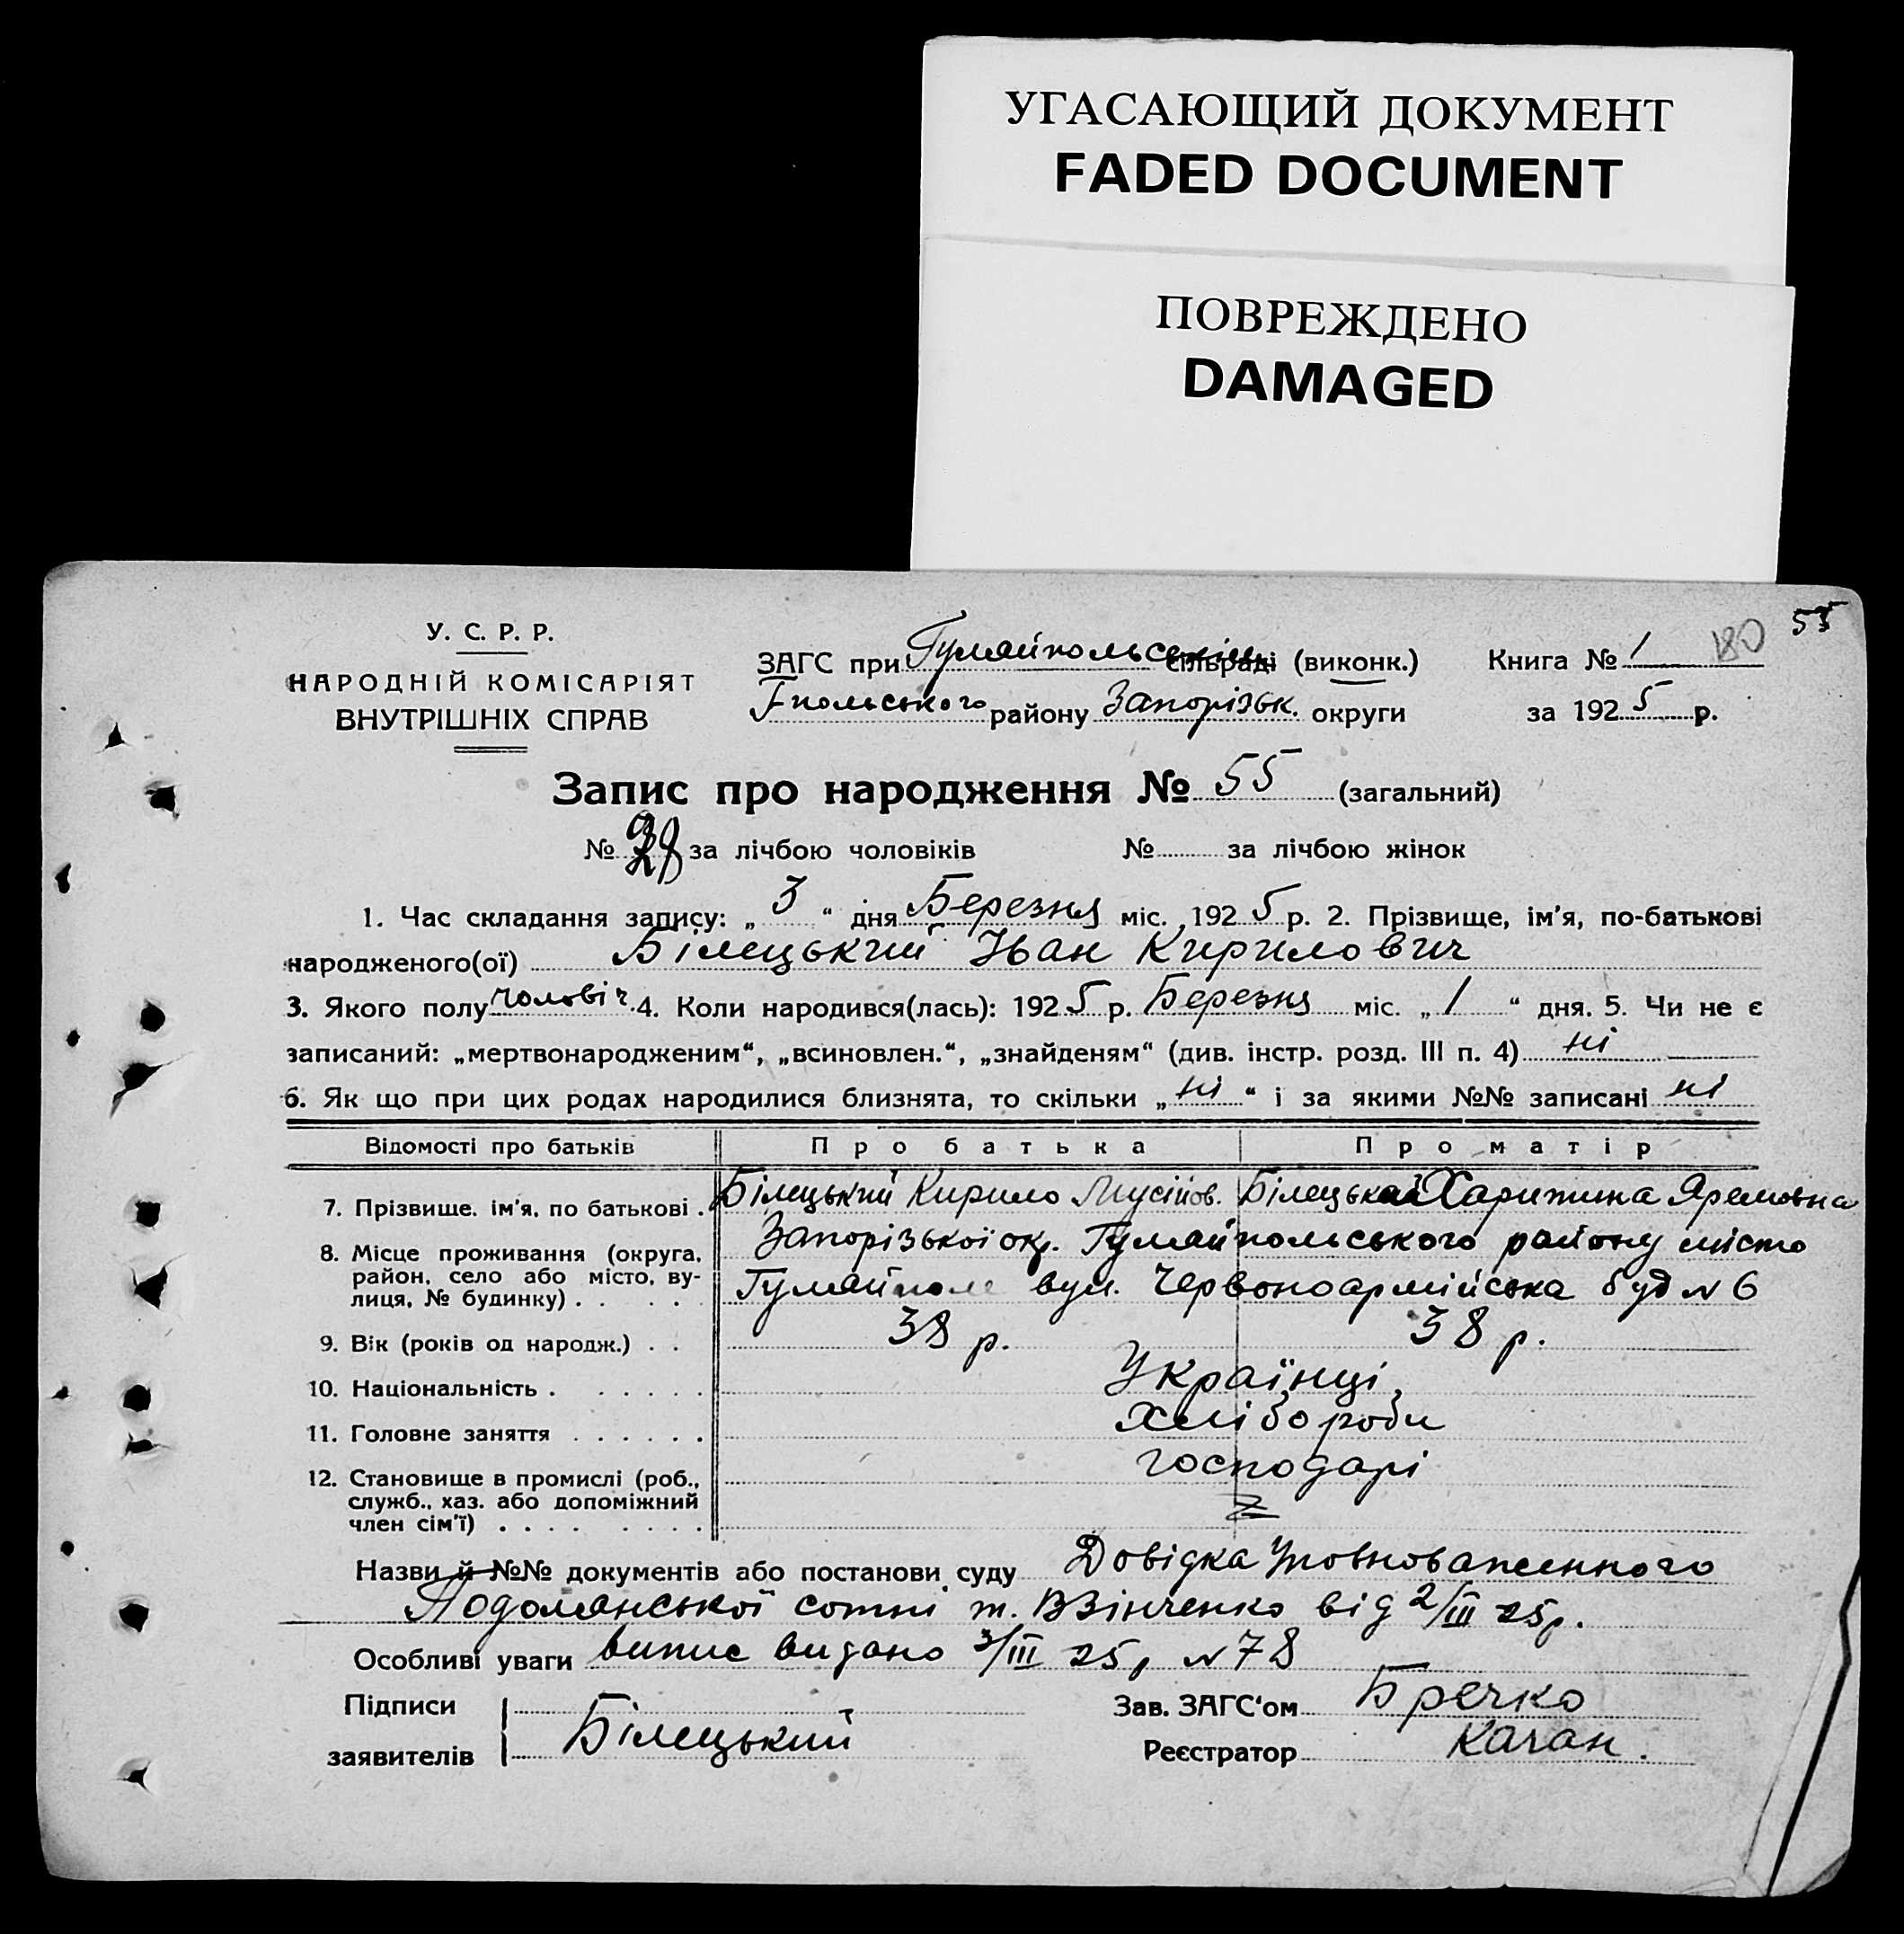 УГАСАЮЩИЙ ДОКУМЕНТ
FADED DOCUMENT
ПОВРЕЖДЕНО
DAMAGED
55
180
У. С. Р. Р.
НАРОДНІЙ КОМІСАРІЯТ
ВНУТРІШНІХ СПРАВ
ЗАГС при Гуляйпольськім сільраді (виконк.)
Г-польського району Запорізьк. округи
Книга № 1
за 1925 р.
Запис про народження № 55 (загальний)
№ за лічбою чоловіків № за лічбою жінок
1. Час складання запису: „3“ дня Березня міс. 1925 р. 2. Прізвище, ім'я, по-батькові
народженого(ої) Білецький Іван Кирилович
3. Якого полу чоловіч. 4. Коли народився(лась): 1925 р. Березня міс. „1“ дня. 5. Чи не є
записаний: „мертвонародженим“, „всиновлен.“, „знайденям“ (див. інстр. розд. III п. 4) ні
6. Як що при цих родах народилися близнята, то скільки „ні“ і за якими №№ записані ні
Відомості про батьків Про батька Про матір
7. Прізвище. ім'я, по батькові . Білецький Кирило Мусійов. Білецька Харитина Яремовна
8. Місце проживання (округа, район, село або місто, вулиця, № будинку) . . . . . Запорізької окр. Гуляйпольського району місто
Гуляйполе вул. Червоноармійська буд № 6
9. Вік (років од народж.) . . 38 р. 38 р.
10. Національність . . . . . . Українці,
11. Головне заняття . . . . . . хлібороби
12. Становище в промислі (роб., служб., хаз. або допоміжний член сім'ї) . . . . . . . . господарі
Назви й №№ документів або постанови суду Довідка Уповноваженного
Подолянської сотні т. Взінченко від 2/III 25р.
Особливі уваги випис видано 3/III 25р №78
Підписи
заявителів Білецький
Зав. ЗАГС‘ом Бречко
Реєстратор Качан.